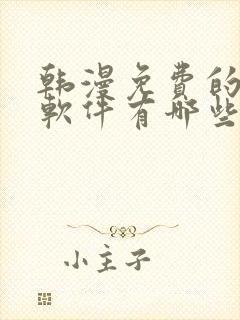 韩漫免费的
软件有哪些
小主子